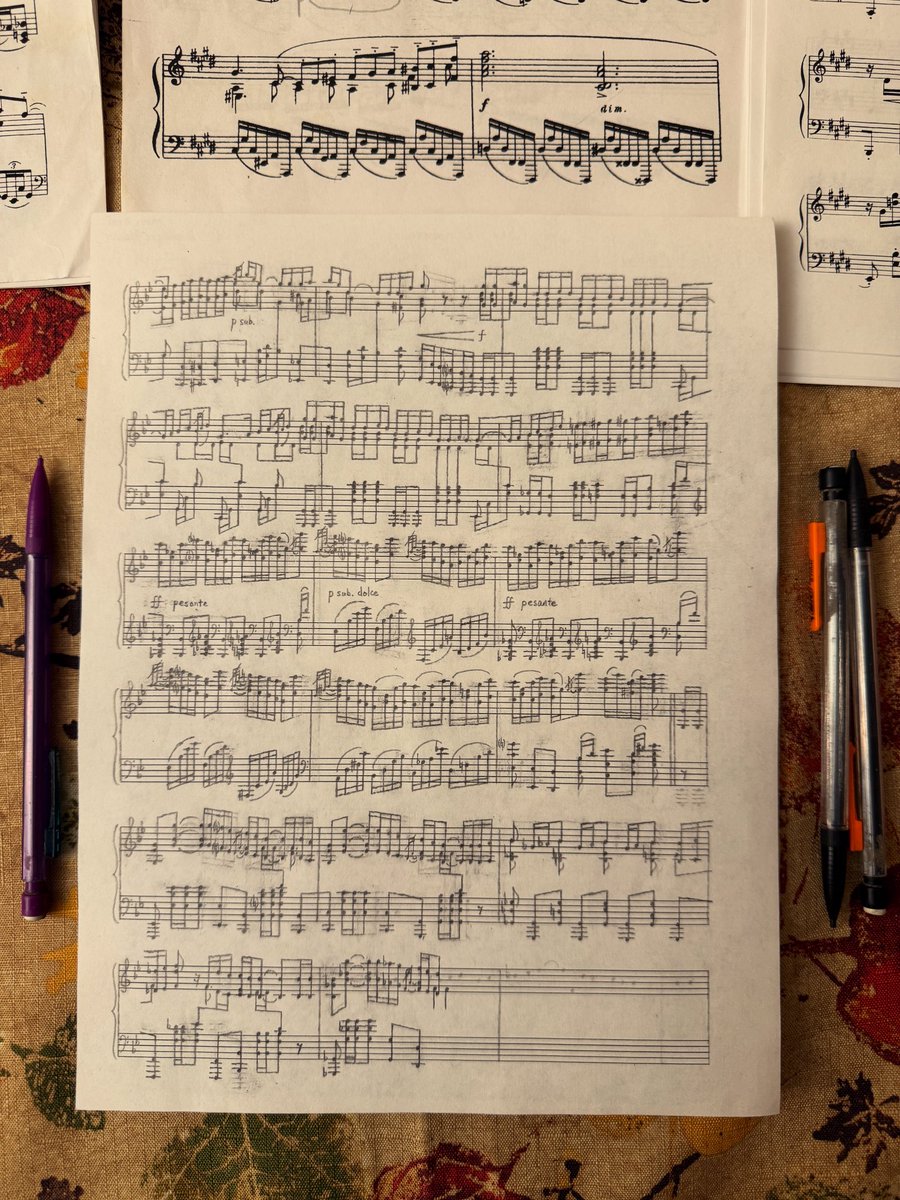 f dim.
p sub.
f
ff pesante
p sub. dolce
ff pesante